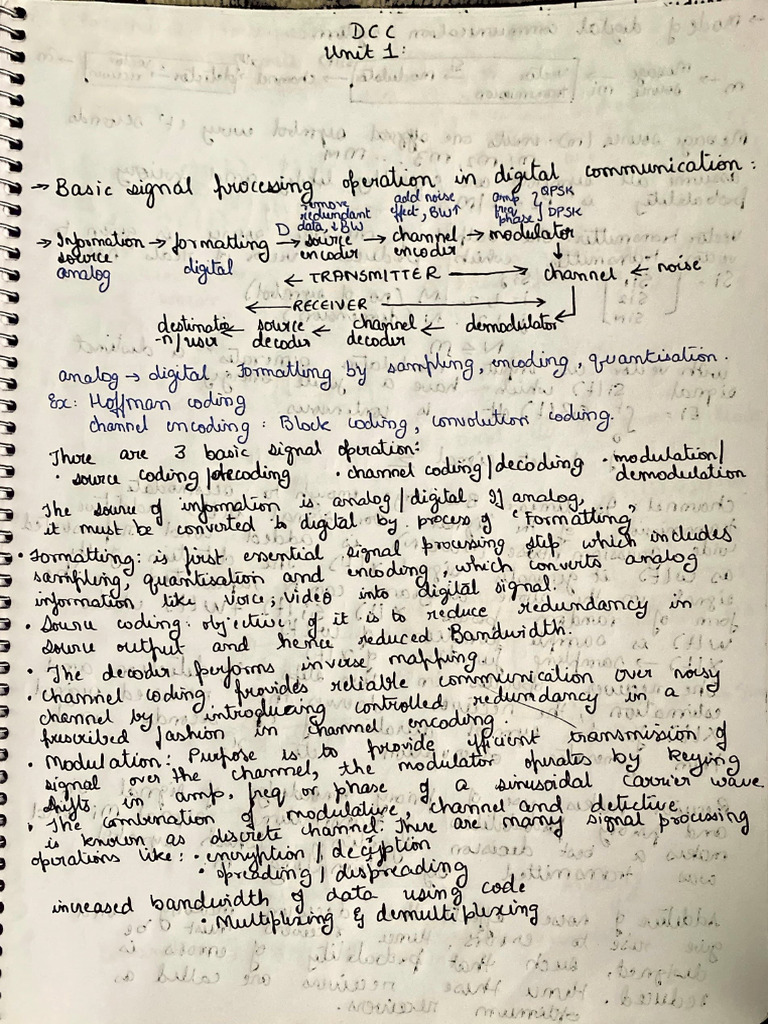 DCC
Unit 1:
→ Basic signal processing operation in digital communication:
remove redundant data, ↓BW
add noise effect, BW↑
amp freq phase } QPSK DPSK
D
→ Information source → formatting → source encoder → channel encoder → modulator
analog digital
← TRANSMITTER → channel ← noise
← RECEIVER →
destinatio-n/user ← source decoder ← channel decoder ← demodulator
analog → digital : Formatting by sampling, encoding, quantisation.
Ex: Hoffman coding
channel encoding : Block coding, convolution coding.
There are 3 basic signal operation:
• source coding/decoding • channel coding/decoding • modulation/
demodulation
The source of information is analog/digital. If analog,
it must be converted to digital by process of "Formatting"
• Formatting: is first essential signal processing step which includes
sampling, quantisation and encoding, which converts analog
information like voice, video into digital signal.
• Source coding: objective of it is to reduce redundancy in
source output and hence reduced Bandwidth.
• The decoder performs inverse mapping.
• Channel coding provides reliable communication over noisy
channel by introducing controlled redundancy in a
prescribed fashion in channel encoding.
• Modulation: Purpose is to provide efficient transmission of
signal over the channel, the modulator operates by keying
shifts in amp, freq or phase of a sinusoidal carrier wave.
• The combination of modulative, channel and detective
is known as discrete channel. There are many signal processing
operations like: • encryption/decryption
• spreading/dispreading
increased bandwidth of data using code
• Multiplexing & demultiplexing